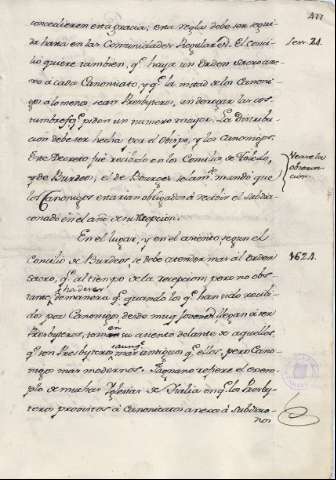 concedieren esta gracia; esta regla debe ser segui-
da hasta en las Comunidades Regulares. El conci-
lio quiere tambien, qe. haya un orden sacro anexo
a cada Canonicato, y qe. la mitad de los Canoni-
gos a lo menos sean Presbyteros, en donde las cos-
tumbres pidan un numero mayor. La distribu-
cion debe ser hecha por el Obispo, y los Canonigos.
Este Decreto fué recibido en los Concilios de Toledo,
y de Burdeos; el de Bourges solamte. mandó que
los Canonigos estarian obligados à recibir el Subdia-
conado en el año de su recepcion.
En el lugar, y en el asiento segun el
Concilio de Burdeos se debe atender mas al orden
sacro, qe. al tiempo de la recepcion; pero no obs-
tante, ha de ser de manera qe. quando los qe. han sido recibi-
dos por Canonigos desde muy jovenes llegan a ser
Presbyteros, tomen su asiento delante de aquellos
qe. son Presbyteros aunqe. mas antiguos qe. ellos, pero Cano-
nigos mas modernos. Fagnano refiere el exem-
plo de muchas Iglesias de Italia en qe. los Presby-
teros promovidos à Canonicatos anexos à Subdiaco-
nos
Sess. 24.
Vease la
observa-
cion.
1624.